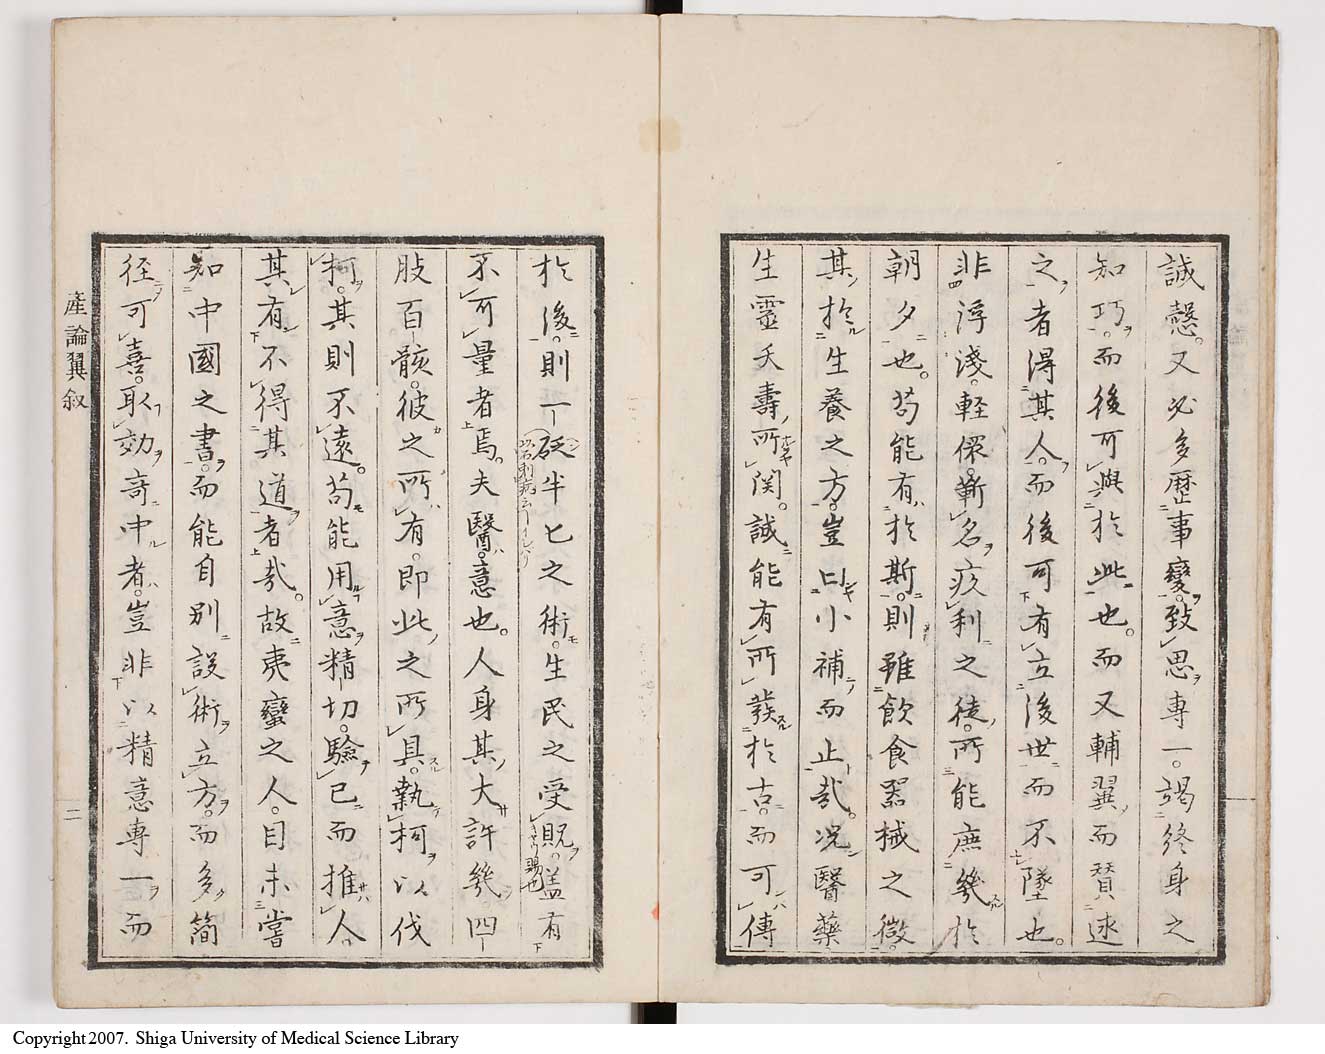 誠愨。又必多歴事變。致思専一。竭終身之
知巧。而後可與於此也。而又輔翼而賛述
之者得其人。而後可有立後世而不墜也。
非浮淺。軽儇。蘄名疚利之徒。所能庶幾於
朝夕也。苟能有於斯。則雖飲食器械之微。
其於生養之方。豈曰小補而止哉。况醫藥
生霊夭壽所関。誠能有所發於古。而可傳
於後。則一砭半匕之術。生民之受貺。盖有
不可量者焉。夫醫。意也。人身其大許幾四
肢百骸。彼之所有。即此之所具。執柯以伐
柯。其則不遠。苟能用意精切。驗已而推人。
其有不得其道者哉。故夷蠻之人。目未嘗
知中國之書。而能自別設術立方。而多簡
径可喜。取効奇中者。豈非以精意専一而
産論翼叙
二
Copyright 2007. Shiga University of Medical Science Library